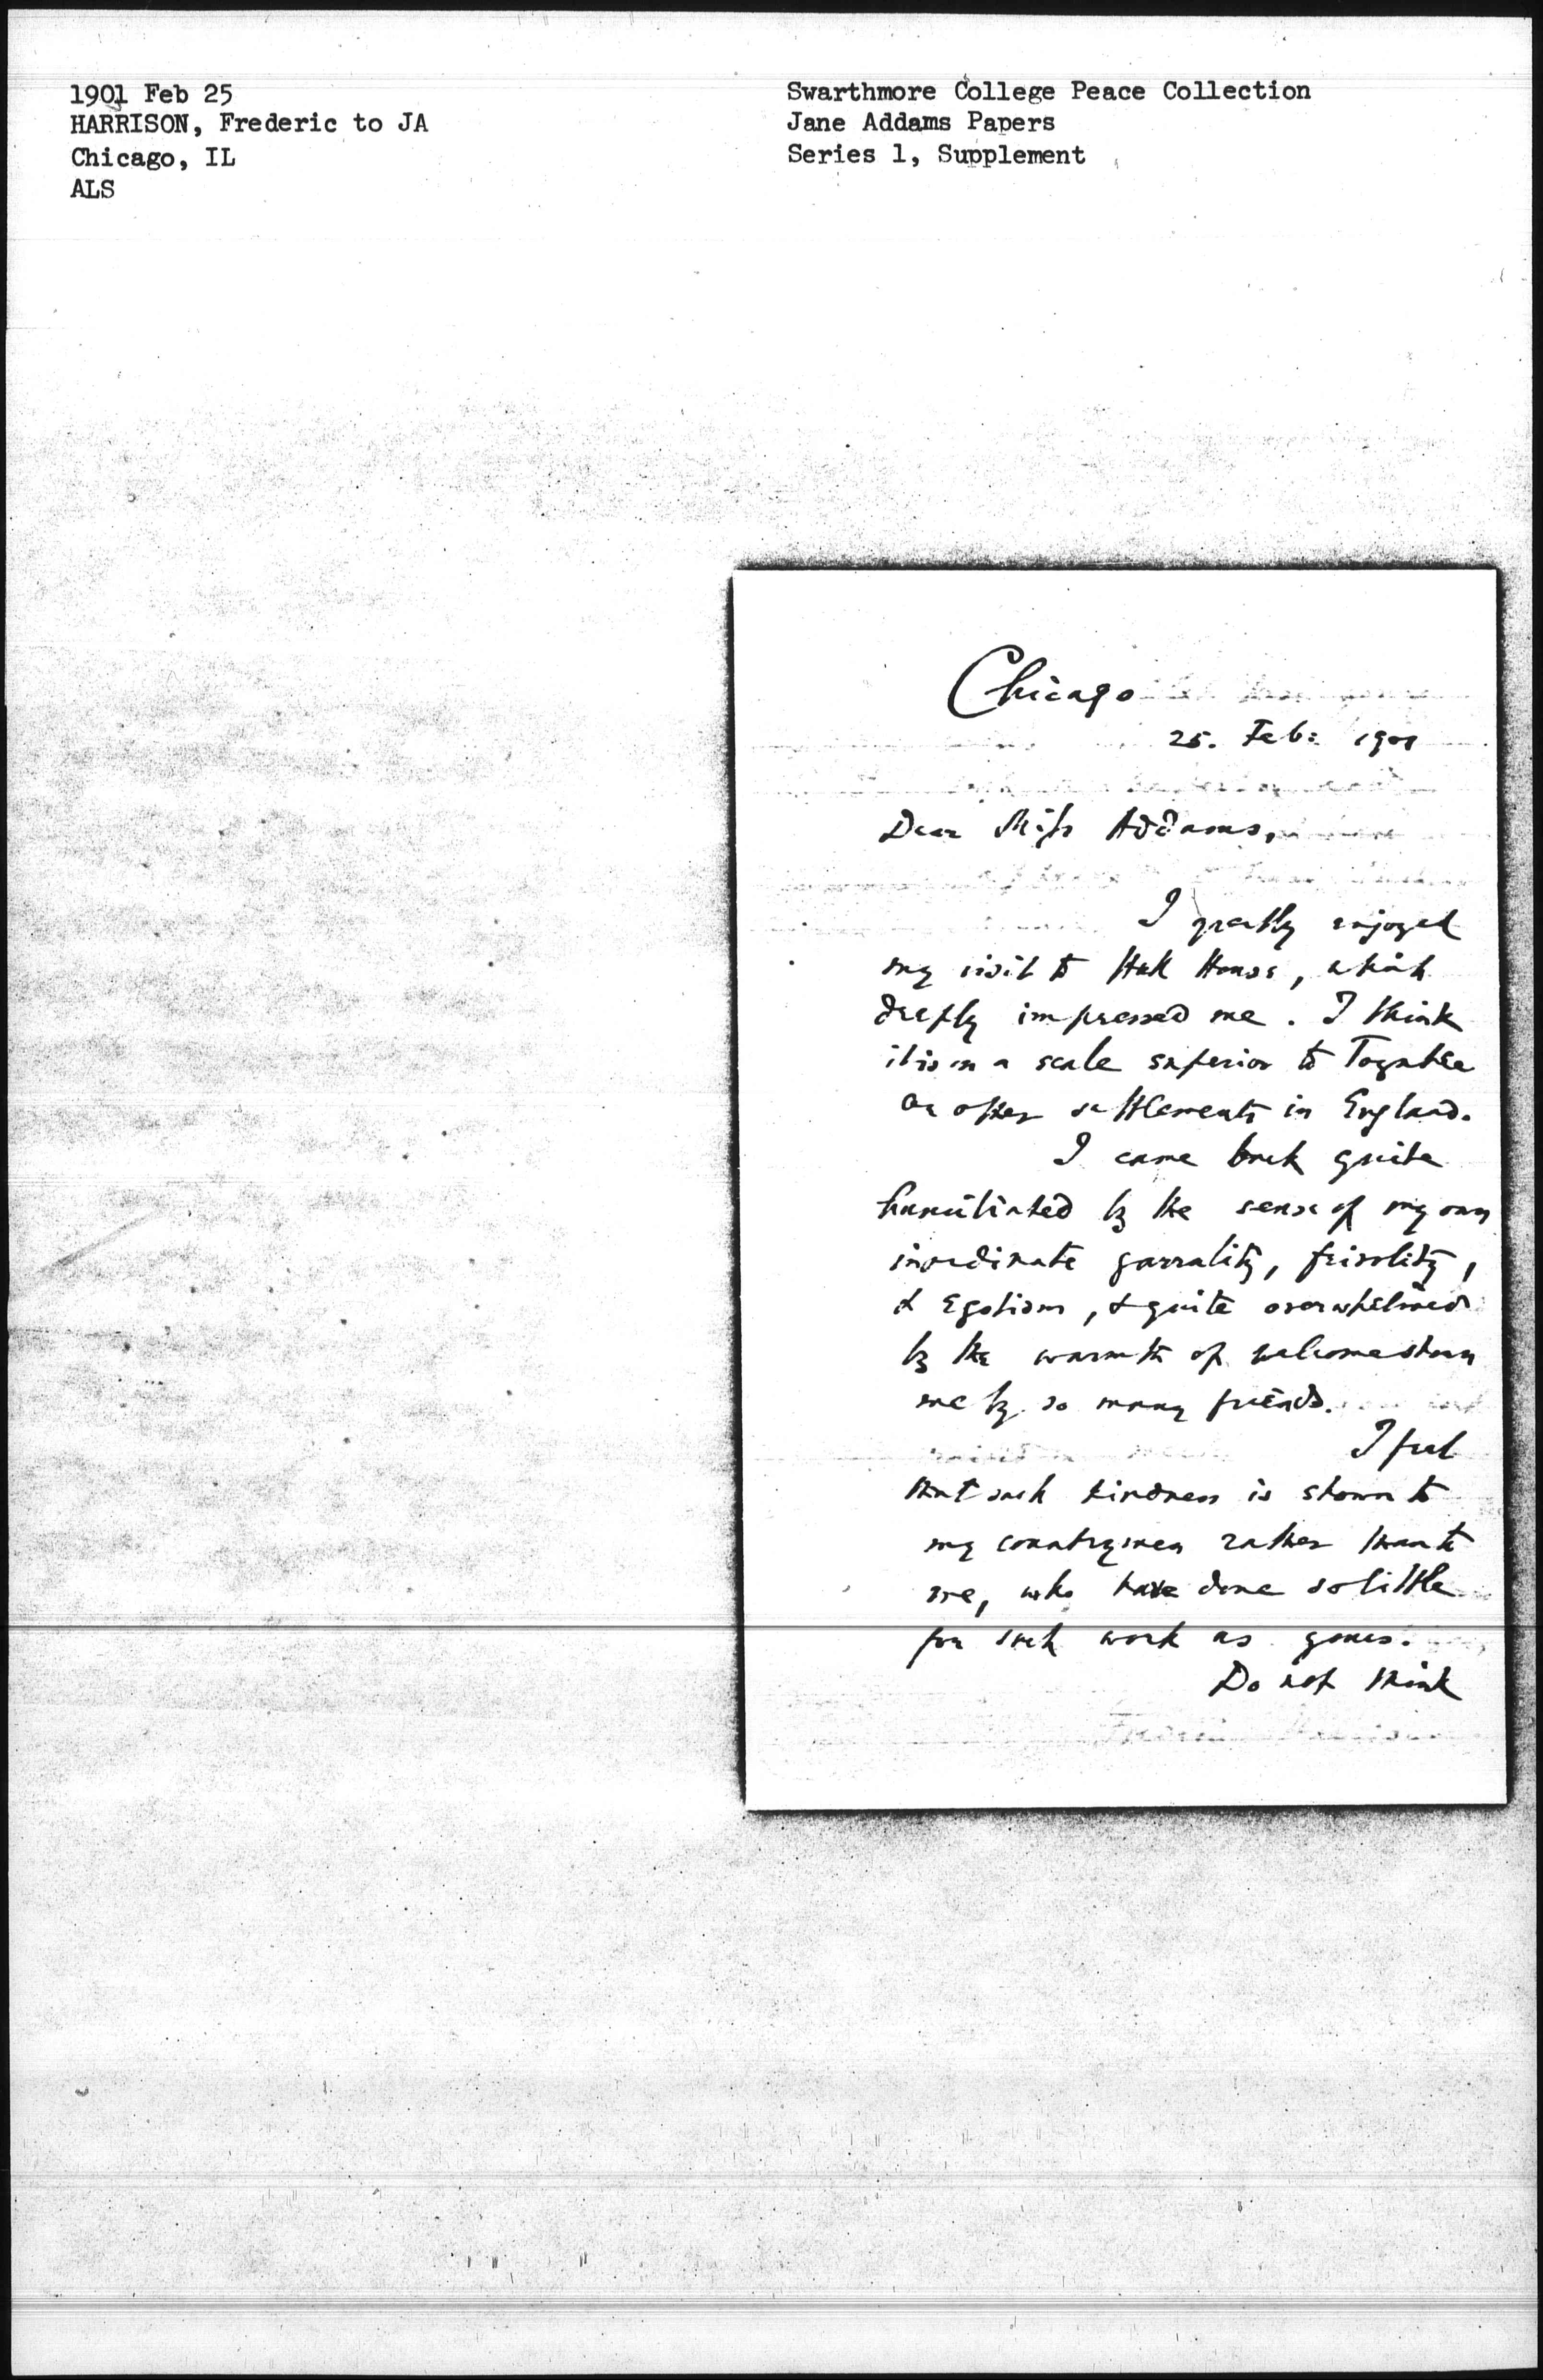 1901 Feb 25
HARRISON, Frederic to JA
Chicago, IL
ALS
Swarthmore College Peace Collection
Jane Addams Papers
Series 1, Supplement
Chicago
25. Feb: 1901
Dear Miss Addams,
I greatly enjoyed
my visit to Hull House, which
deeply impressed me. I think
it is on a scale superior to Toynbee
or other settlements in England.
I came back quite
humiliated by the sense of my own
inordinate garrality, frivolity,
& Egotism, & quite overwhelmed
by the warmth of welcome shown
me by so many friends.
I feel
that such kindness is shown to
my countrymen rather than to
me, who have done so little
for such work as yours.
Do not think